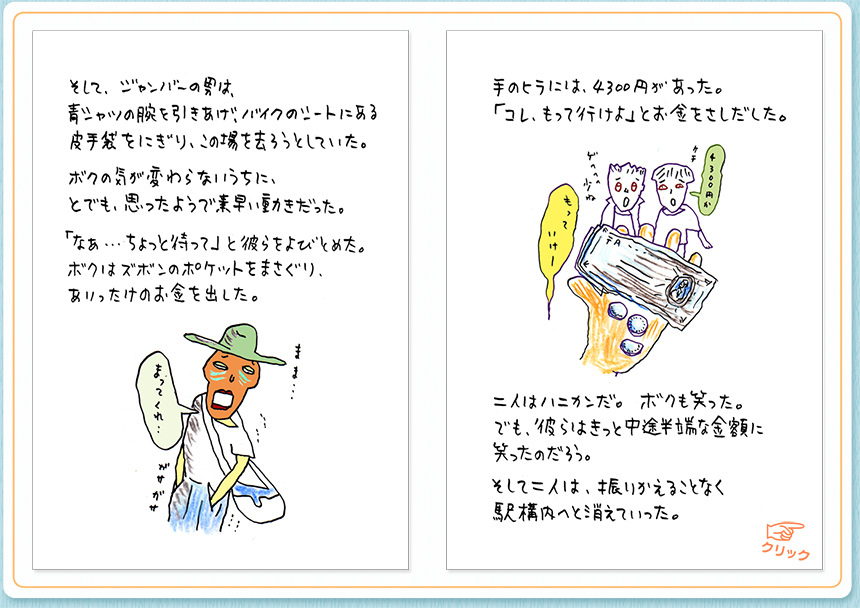 そして、ジャンバーの男は、
青シャツの腕を引きあげ、バイクのシートにある
皮手袋をにぎり、この場を去ろうとしていた。
ボクの気が変わらないうちに、
とでも、思ったようで素早い動きだった。
「なぁ…ちょっと待って」と彼らをよびとめた。
ボクはズボンのポケットをまさぐり、
ありったけのお金を出した。
まま…
まってくれ…
ガサガサ
手のヒラには、4300円があった。
「コレ、もって行けよ」とお金をさしだした。
ケチ
4300円か
ゲヘヘ
少ね
もって
いけー
二人はハニカンだ。 ボクも笑った。
でも、彼らはきっと中途半端な金額に
笑ったのだろう。
そして二人は、振りかえることなく
駅構内へと消えていった。
クリック